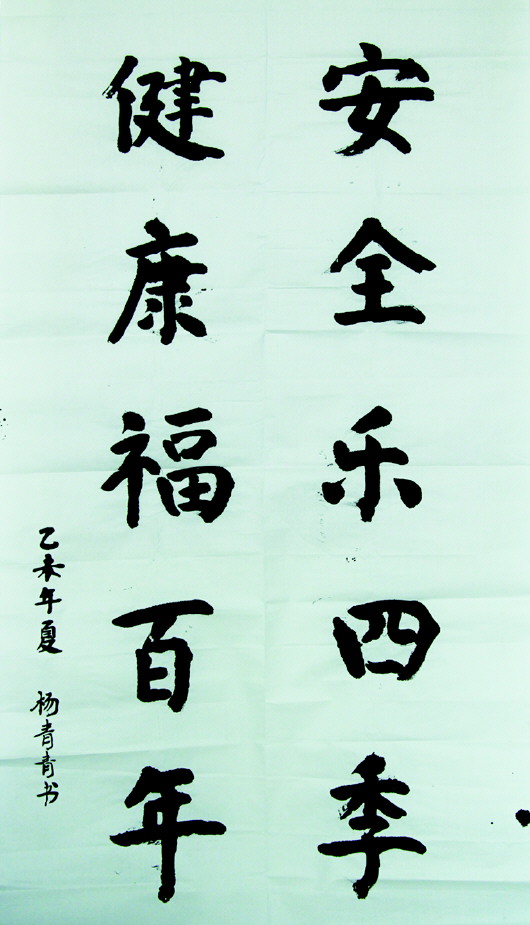 安全乐四季
健康福百年
乙未年夏 杨青青书